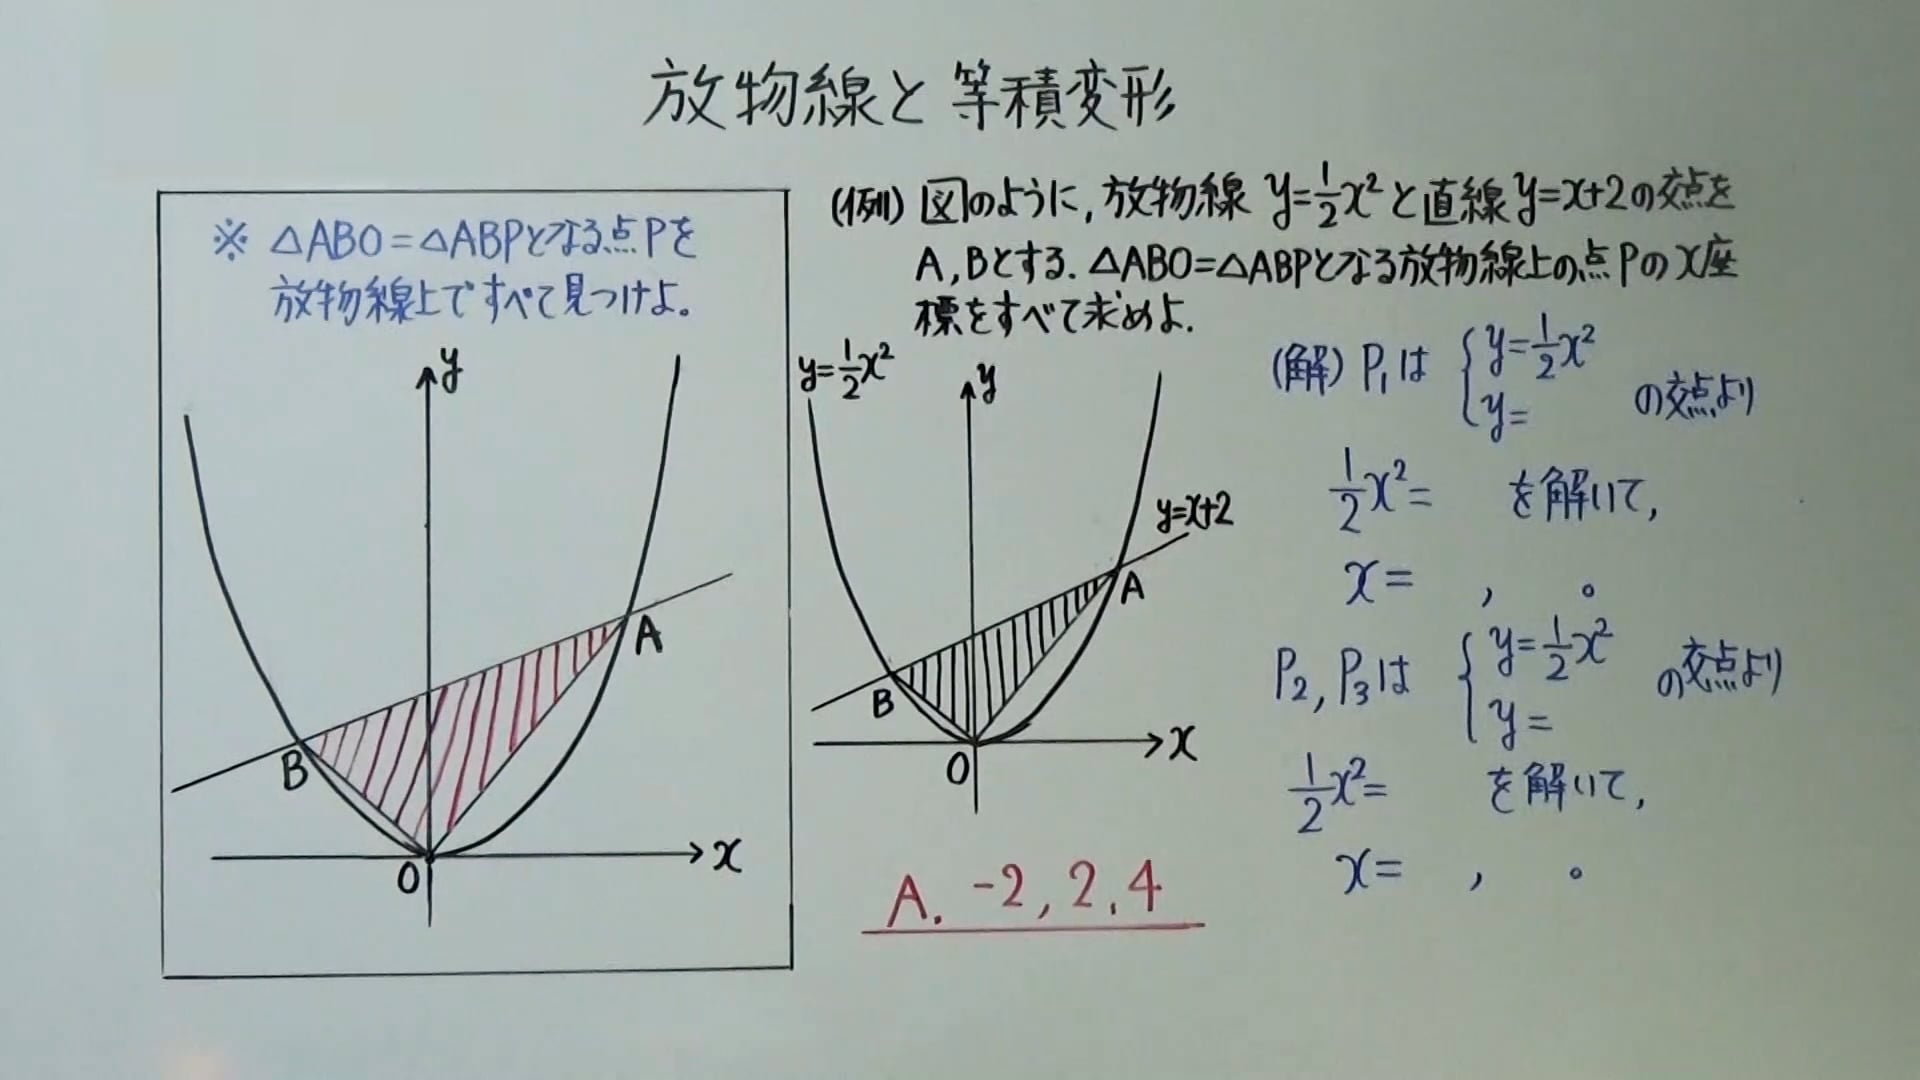 放物線と等積変形
※ △ABO=△ABPとなる点Pを
放物線上ですべて見つけよ。
y
A
B
O
x
(例) 図のように, 放物線 y=1/2x² と直線 y=x+2の交点を
A, Bとする. △ABO=△ABPとなる放物線上の点Pのx座
標をすべて求めよ.
y=1/2x²
y
y=x+2
A
B
O
x
A. -2, 2, 4
(解) P₁は { y=1/2x²
y=
の交点より
1/2x²= を解いて,
x= , 。
P₂, P₃は { y=1/2x²
y=
の交点より
1/2x²= を解いて,
x= , 。